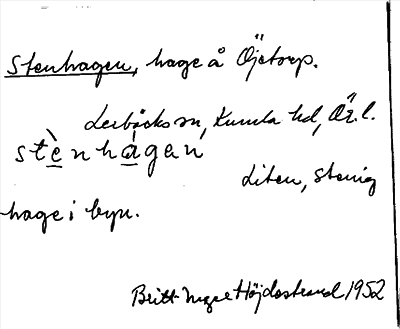 Stenhagen, hage å Öjetorp.
Lerbäcks sn, Kumla hd, Ör. l.
stè̲nhá̲gan
Liten, stenig
hage i byn.
Britt-Inger Höjdestrand 1952